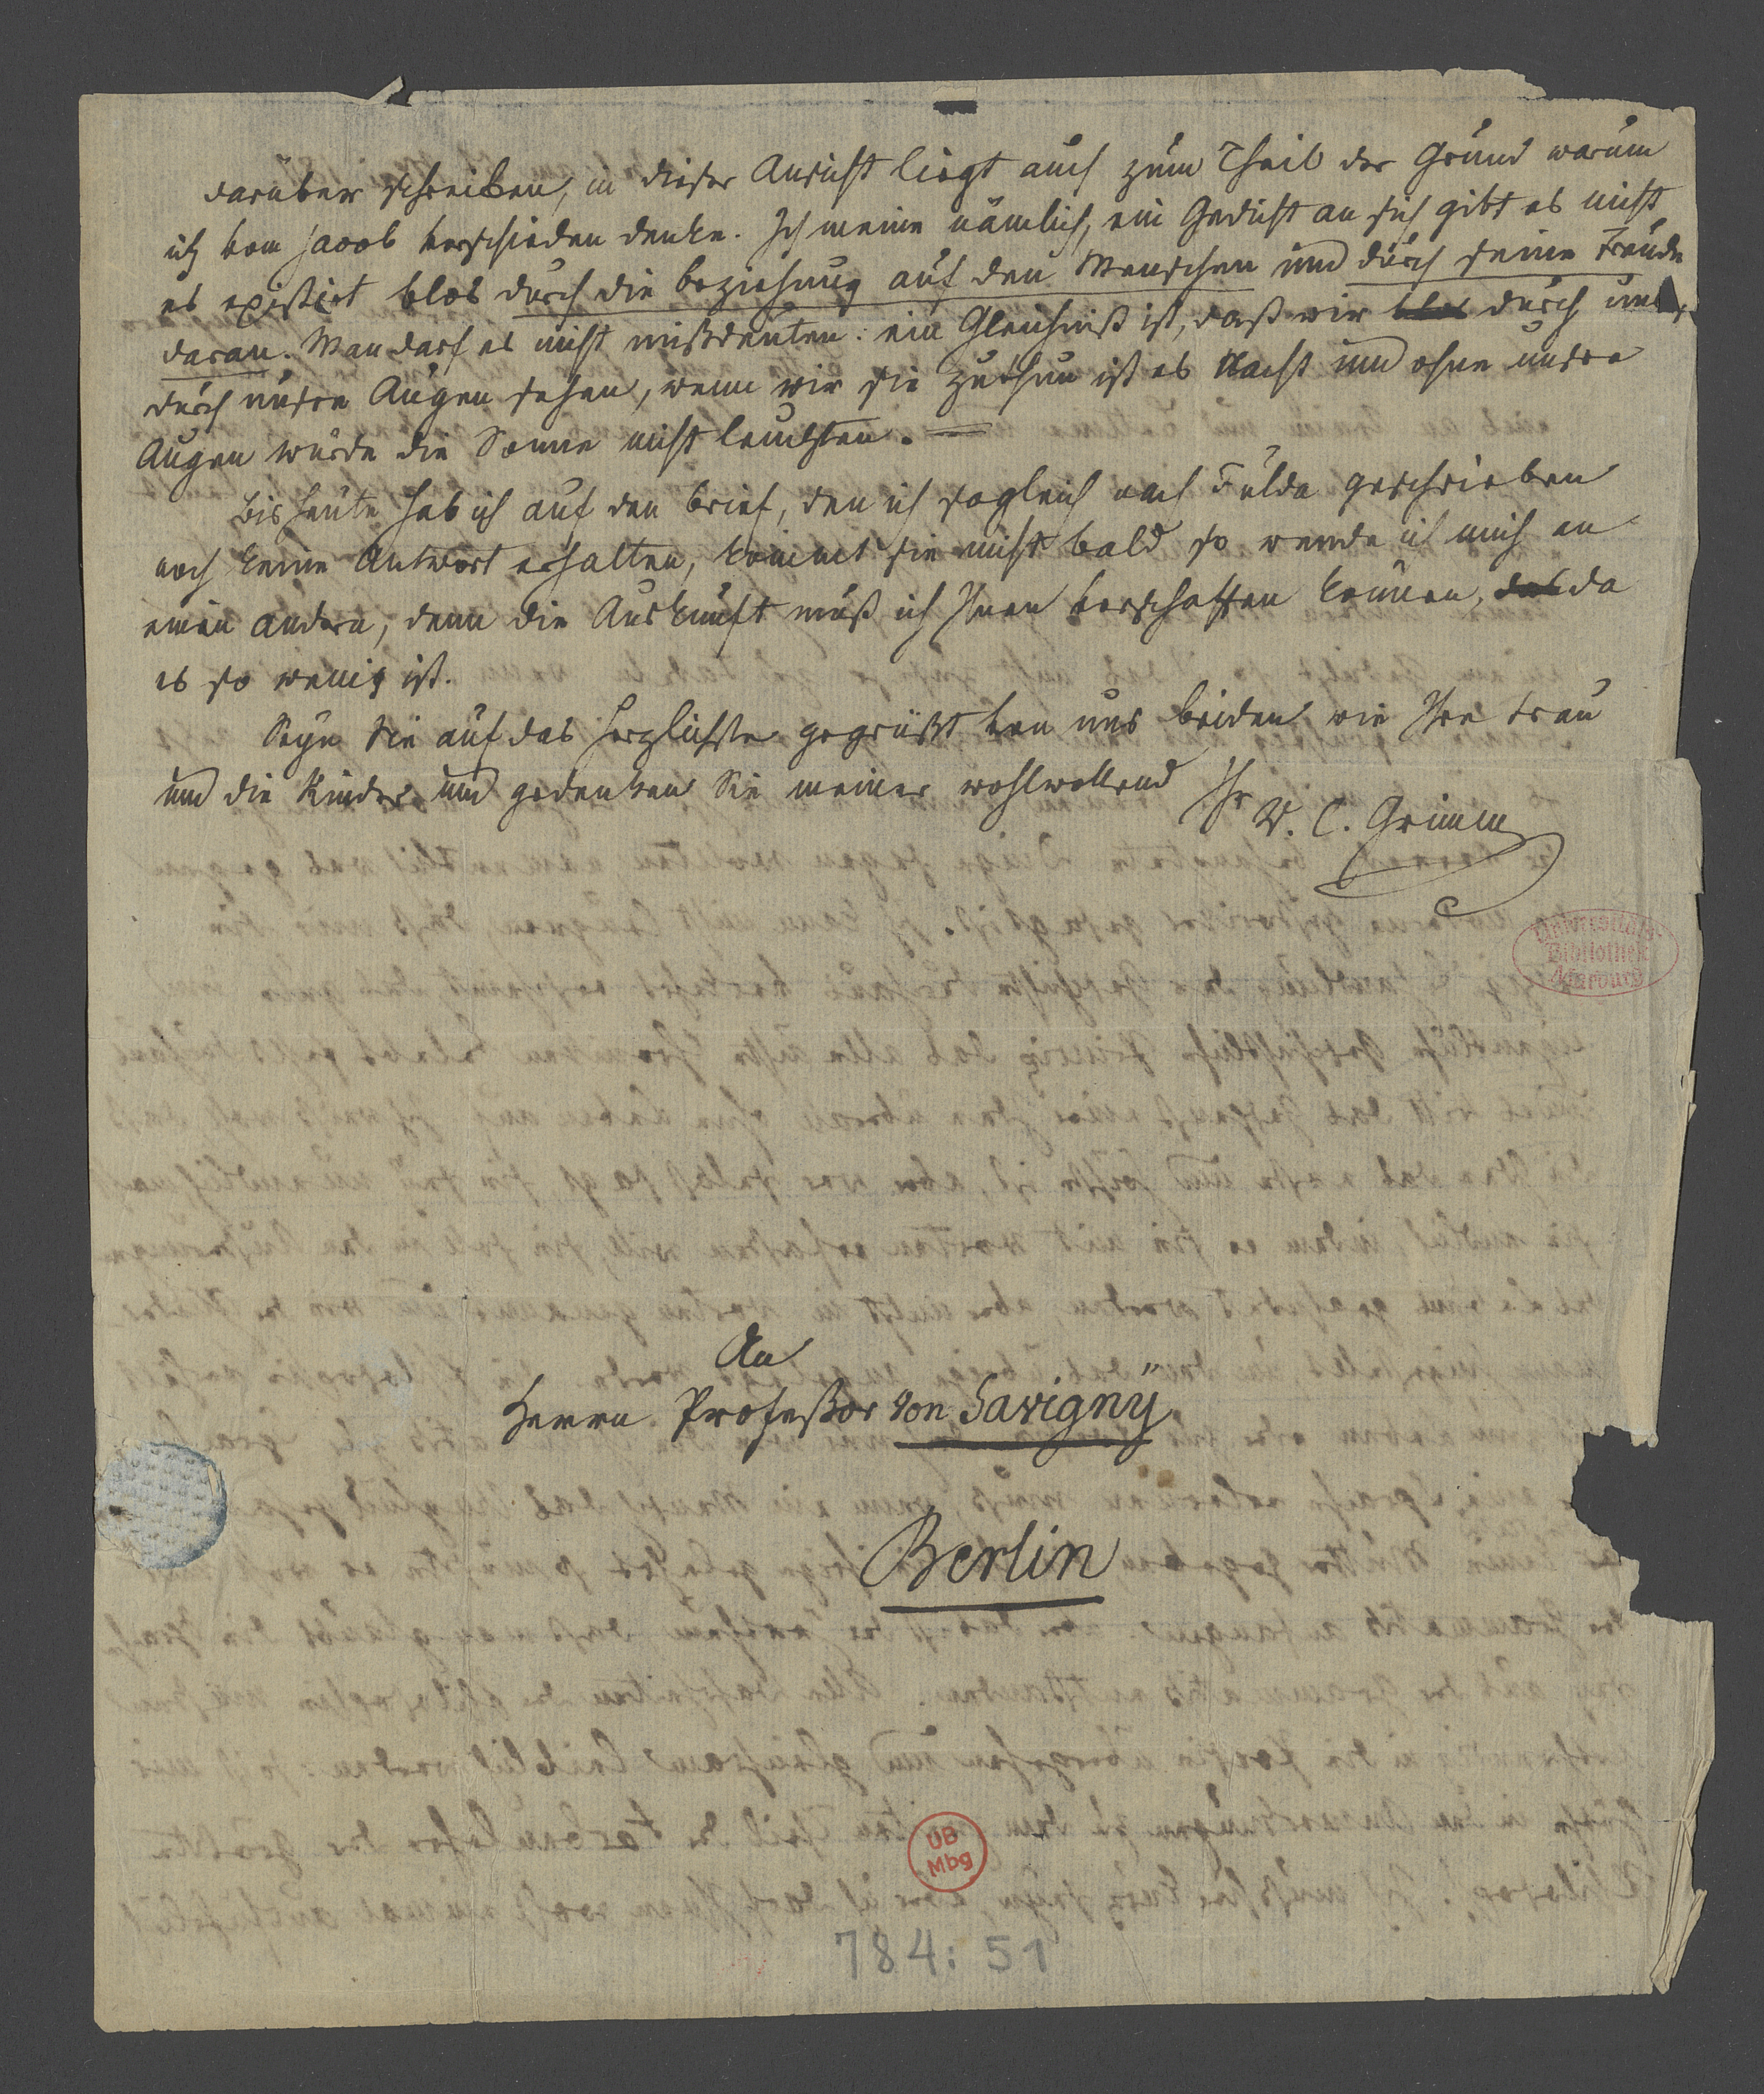 darüber schreiben, in dieser Ansicht liegt auch zum Theil der Grund warum
ich vom Jacob verschieden denke. Ich meine nämlich, ein Gedicht an sich gibt es nicht
es existirt blos durch die Beziehung auf den Menschen und durch seine Freude
daran. Man darf es nicht mißdeuten: ein Gleichniß ist, daß wir blos durch uns,
durch unsre Augen sehen, wenn wir sie zuthun ist es Nacht und ohne unsre
Augen würde die Sonne nicht leuchten. —
Bis heute hab ich auf den Brief, den ich sogleich nach Fulda geschrieben
noch keine Antwort erhalten, kommt sie nicht bald so wende ich mich an
einen andern, denn die Auskunft muß ich Ihnen verschaffen können, das da
es so wenig ist.
Seyn Sie auf das herzlichste gegrüßt von uns beiden wie Ihre Frau
und die Kinder und gedenken Sie meiner wohlwollend
Ihr W. C. Grimm
Universitäts-
Bibliothek
Marburg
An
Herrn Profeßor von Savignÿ
Berlin
UB
Mbg
784: 51